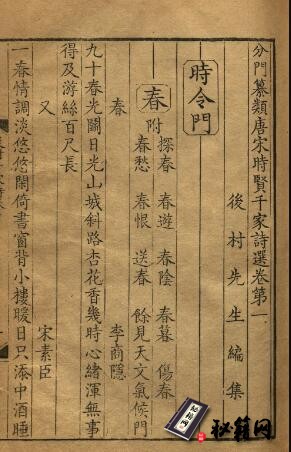 分門纂類唐宋時賢千家詩選卷第一
後村先生編集
時令門
春
附
探春 春遊 春陰 春暮 傷春
春愁 春恨 送春 餘見天文氣候門
春 李商隱
九十春光闘日光山城斜路杏花香幾時心緒渾無事
得及游絲百尺長
又 宋素臣
一春情調淡悠悠閑倚書窗背小樓暖日只添中酒睡
秘籍网
秘籍网